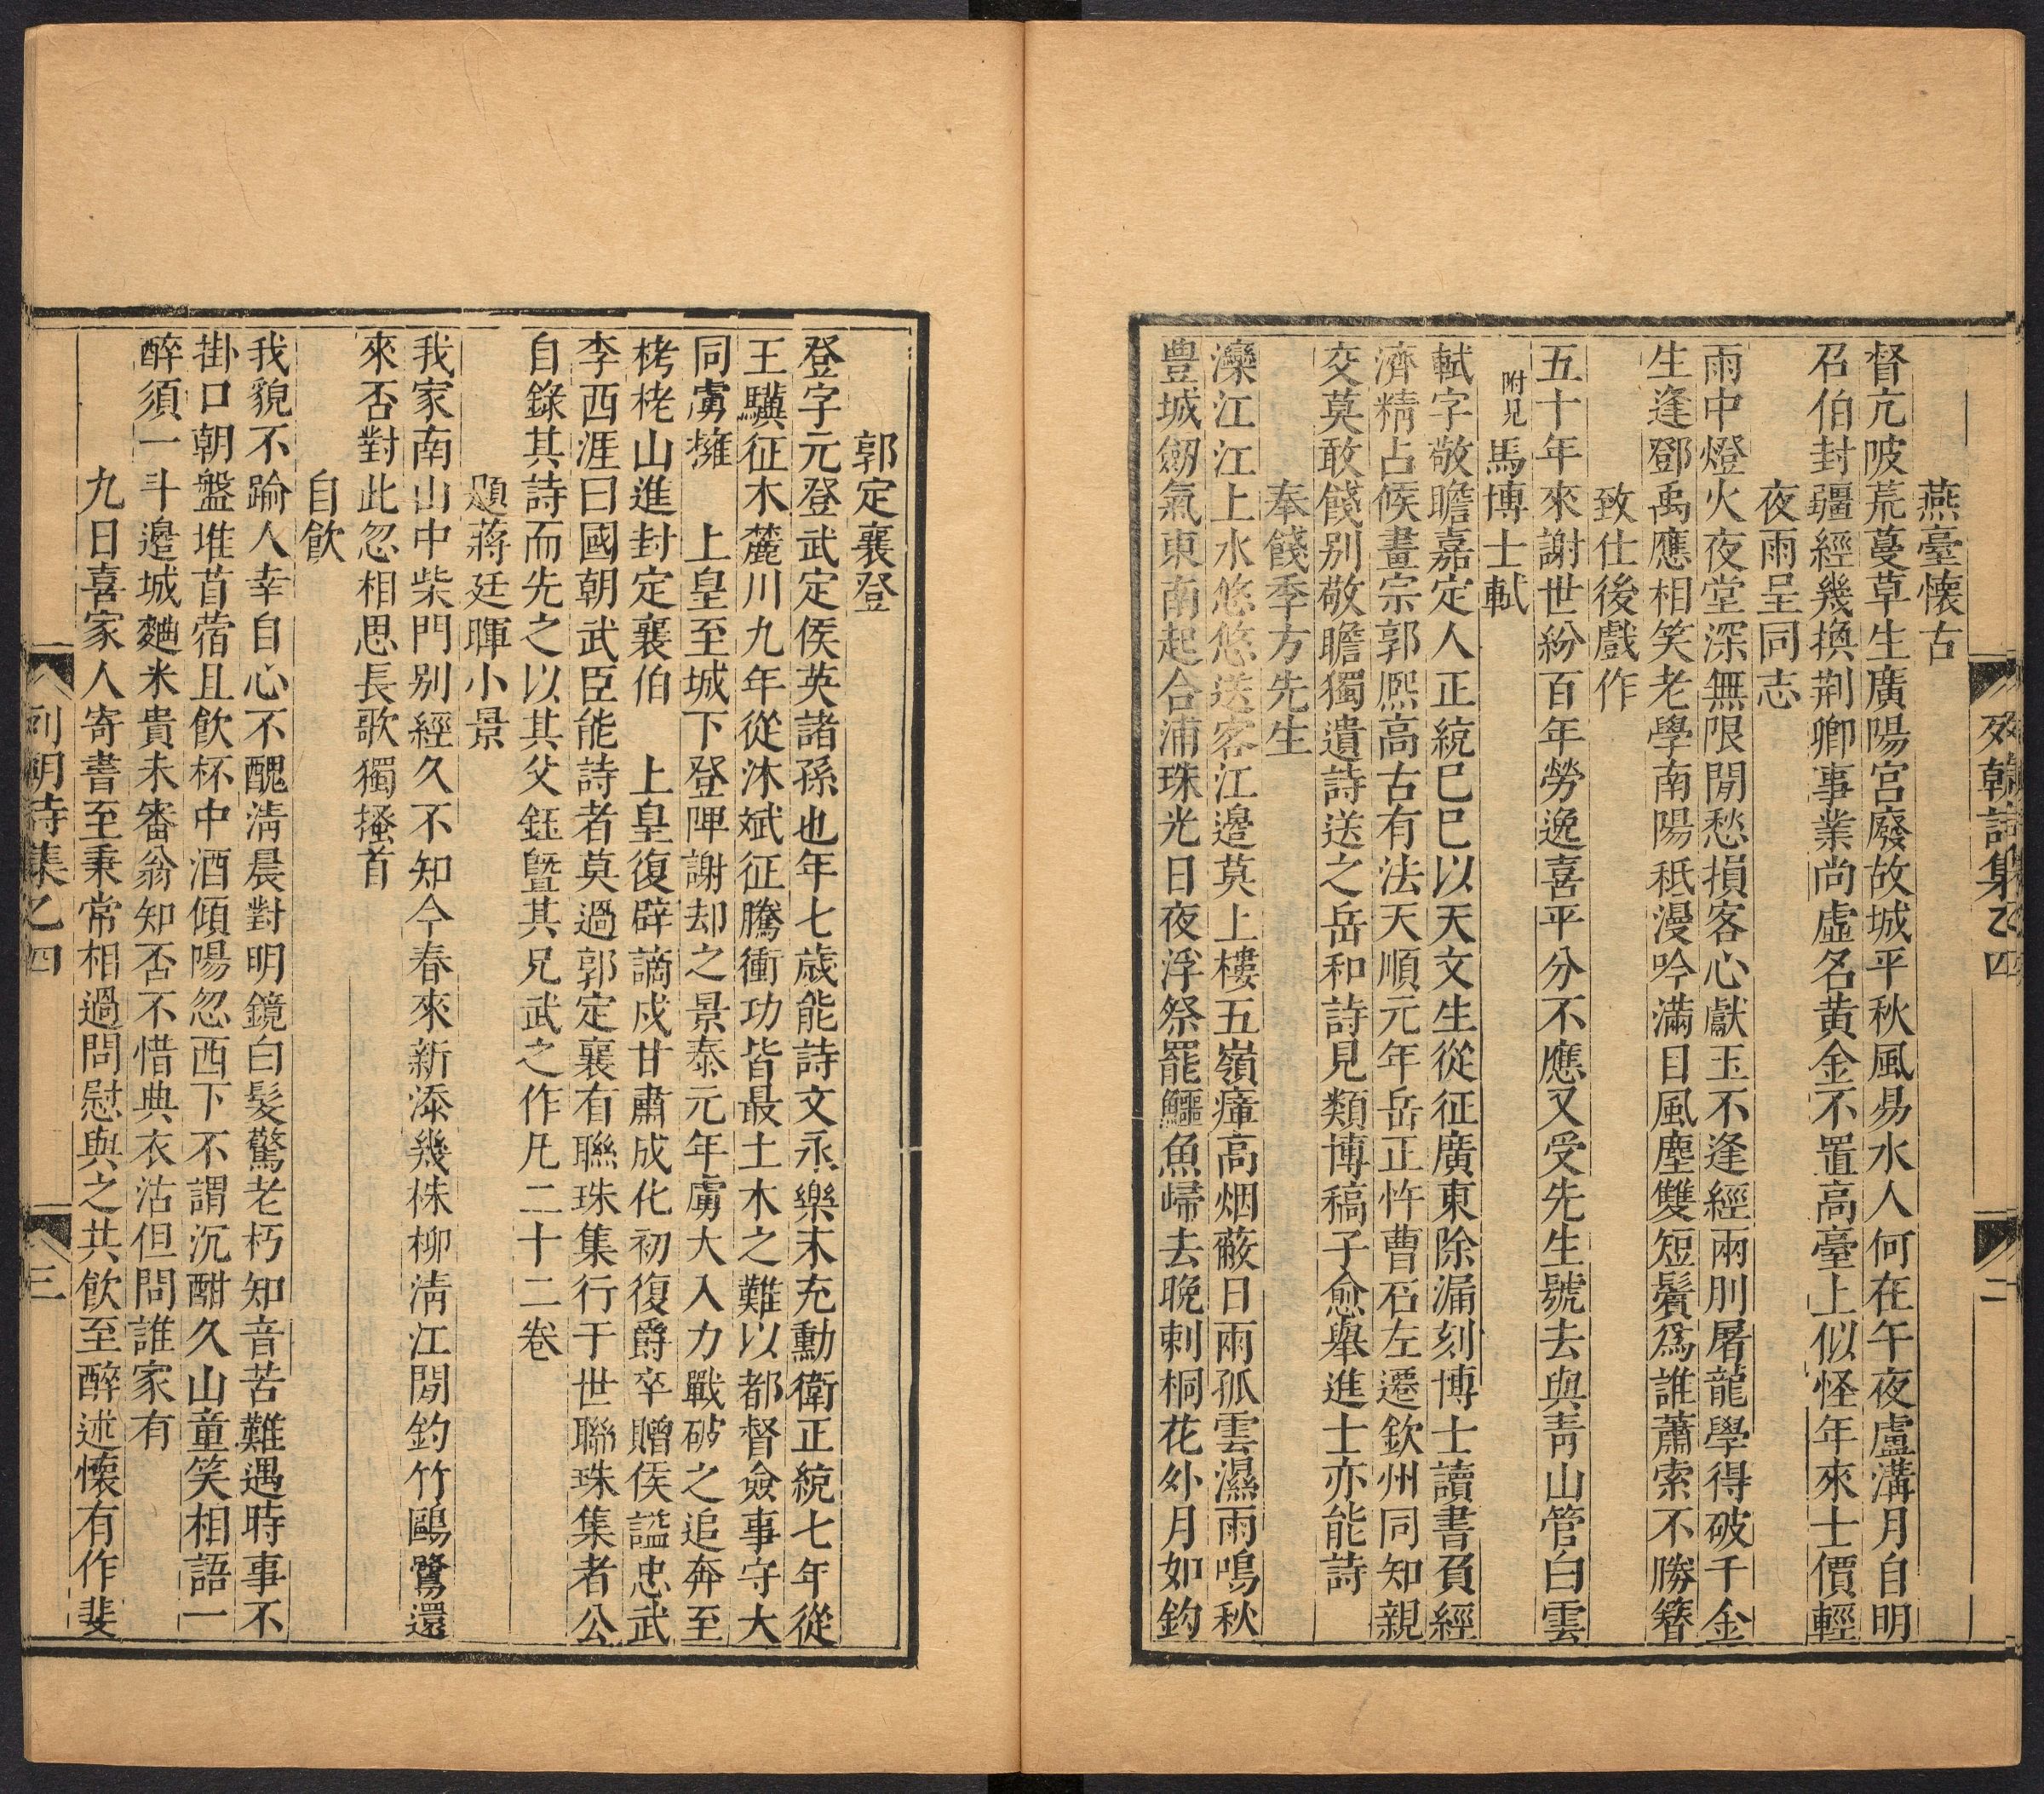 燕臺懷古
督亢陂荒蔓草生廣陽宮廢故城平秋風易水人何在午夜盧溝月自明
召伯封疆經幾換荆卿事業尚虛名黄金不置高臺上似怪年來士價輕
夜雨呈同志
雨中燈火夜堂深無限閒愁損客心獻玉不逢經兩刖屠龍學得破千金
生逢鄧禹應相笑老學南陽秪漫吟滿目風塵雙短鬢爲誰蕭索不勝簪
致仕後戲作
五十年來謝世紛百年勞逸喜平分不應又受先生號去與靑山管白雲
附見 馬博士軾
軾字敬瞻嘉定人正統巳巳以天文生從征廣東除漏刻博士讀書負經
濟精占候畫宗郭熈高古有法天順元年岳正忤曹石左遷欽州同知親
交莫敢餞别敬瞻獨遺詩送之岳和詩見類博稿子愈舉進士亦能詩
奉餞季方先生
灤江江上水悠悠送客江邉莫上樓五嶺瘴高烟蔽日兩孤雲濕雨鳴秋
豊城劒氣東南起合浦珠光日夜浮祭罷鱷魚歸去晚刺桐花外月如鈎
列朝詩集乙四
二
郭定襄登
登字元登武定侯英諸孫也年七歲能詩文永樂末充勳衛正統七年從
王驥征木麓川九年從沐斌征騰衝功皆最土木之難以都督僉事守大
同虜擁 上皇至城下登陴謝却之景泰元年虜大入力戰破之追奔至
栲栳山進封定襄伯 上皇復辟謫戍甘肅成化初復爵卒贈侯諡忠武
李西涯曰國朝武臣能詩者莫過郭定襄有聯珠集行于世聯珠集者公
自錄其詩而先之以其父鈺曁其兄武之作凡二十二卷
題蔣廷暉小景
我家南山中柴門别經久不知今春來新添幾株柳淸江閒釣竹鷗鷺還
來否對此忽相思長歌獨搔首
自飲
我貌不踰人幸自心不醜淸晨對明鏡白髮驚老朽知音苦難遇時事不
掛口朝盤堆苜蓿且飮杯中酒傾陽忽西下不謂沉酣久山童笑相語一
醉須一斗邉城麯米貴未審翁知否不惜典衣沽但問誰家有
九日喜家人寄書至秉常相過問慰與之共飮至醉述懷有作斐
列朝詩集乙四
三